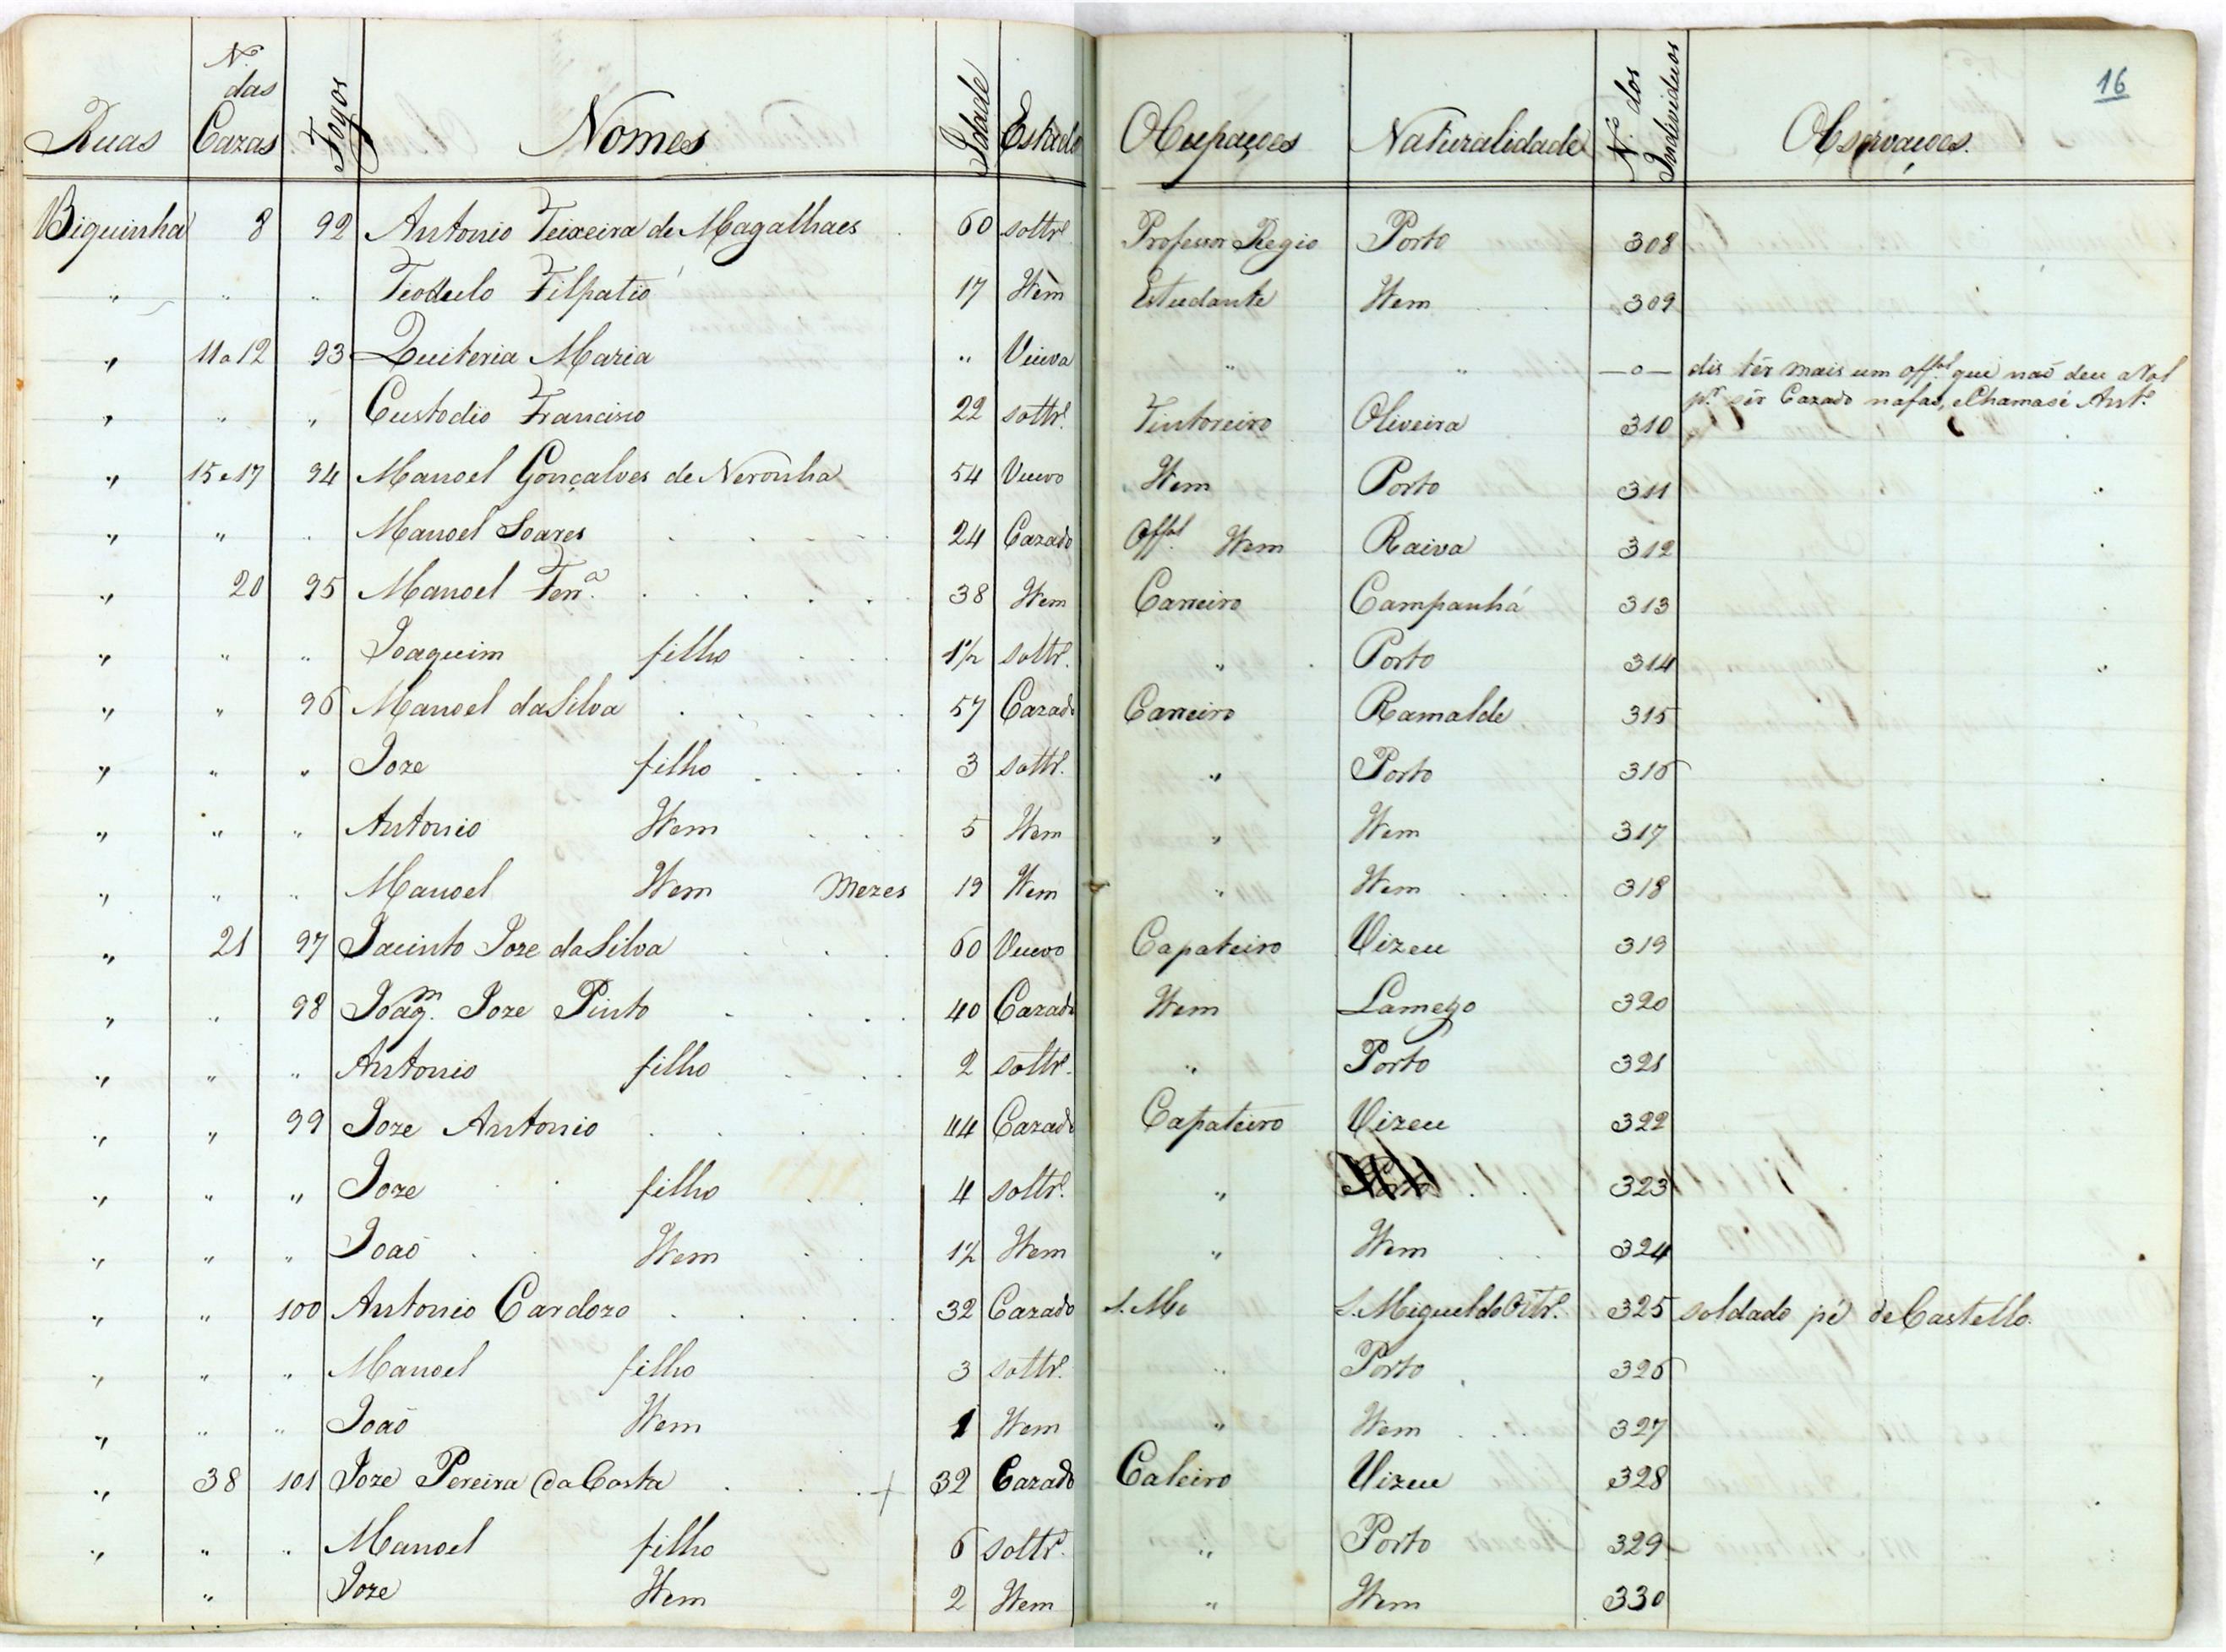 16
Ruas N.º das Cazas Fogos Nomes Idade Estado Ocupaçoes Naturalidade N.º dos Individuos Observaçoes.
Biquinha 8 92 Antonio Teixeira de Magalhaes 60 soltr.º Professor Regio Porto 308
" " " Filpatio 17 Idem Estudante Idem 309
" 11 a 12 93 Quiteria Maria " Viuva " " —o— dis têr mais um off.al que naõ deu a Rol
p.r sêr Cazado , e Chamase Ant.º
" " " Custodio Francisco 22 soltr.º Tintoreiro Oliveira 310
" 15 e 17 94 Manoel Gonçalves de Neronha 54 Viuvo Idem Porto 311
" " " Manoel Soares 24 Cazado Off.al Idem Raiva 312
" 20 95 Manoel Ferr.ª 38 Idem Carreiro Campanhá 313
" " " Joaquim filho 1½ soltr.º " Porto 314
" " 96 Manoel da Silva 57 Cazado Carreiro Ramalde 315
" " " Joze filho 3 soltr.º " Porto 316
" " " Antonio Idem 5 Idem " Idem 317
" " " Manoel Idem Mezes 19 Idem " Idem 318
" 21 97 Jacinto Joze da Silva 60 Viuvo Çapateiro Vizeu 319
" " 98 Joaq.m Joze Pinto 40 Cazado Idem Lamego 320
" " " Antonio filho 2 soltr.º " Porto 321
" " 99 Joze Antonio 44 Cazado Çapateiro Vizeu 322
" " " Joze filho 4 soltr.º " 323
" " " Joaõ Idem 1½ Idem " Idem 324
" " 100 Antonio Cardozo 32 Cazado 325 soldado pé de Castello.
" " " Manoel filho 3 soltr.º " Porto 326
" " " Joaõ Idem 1 Idem " Idem 327
" 38 101 Joze Pereira da Costa 32 Cazado Caleiro Vizeu 328
" " " Manoel filho 6 soltr.º " Porto 329
" Joze Idem 2 Idem " Idem 330